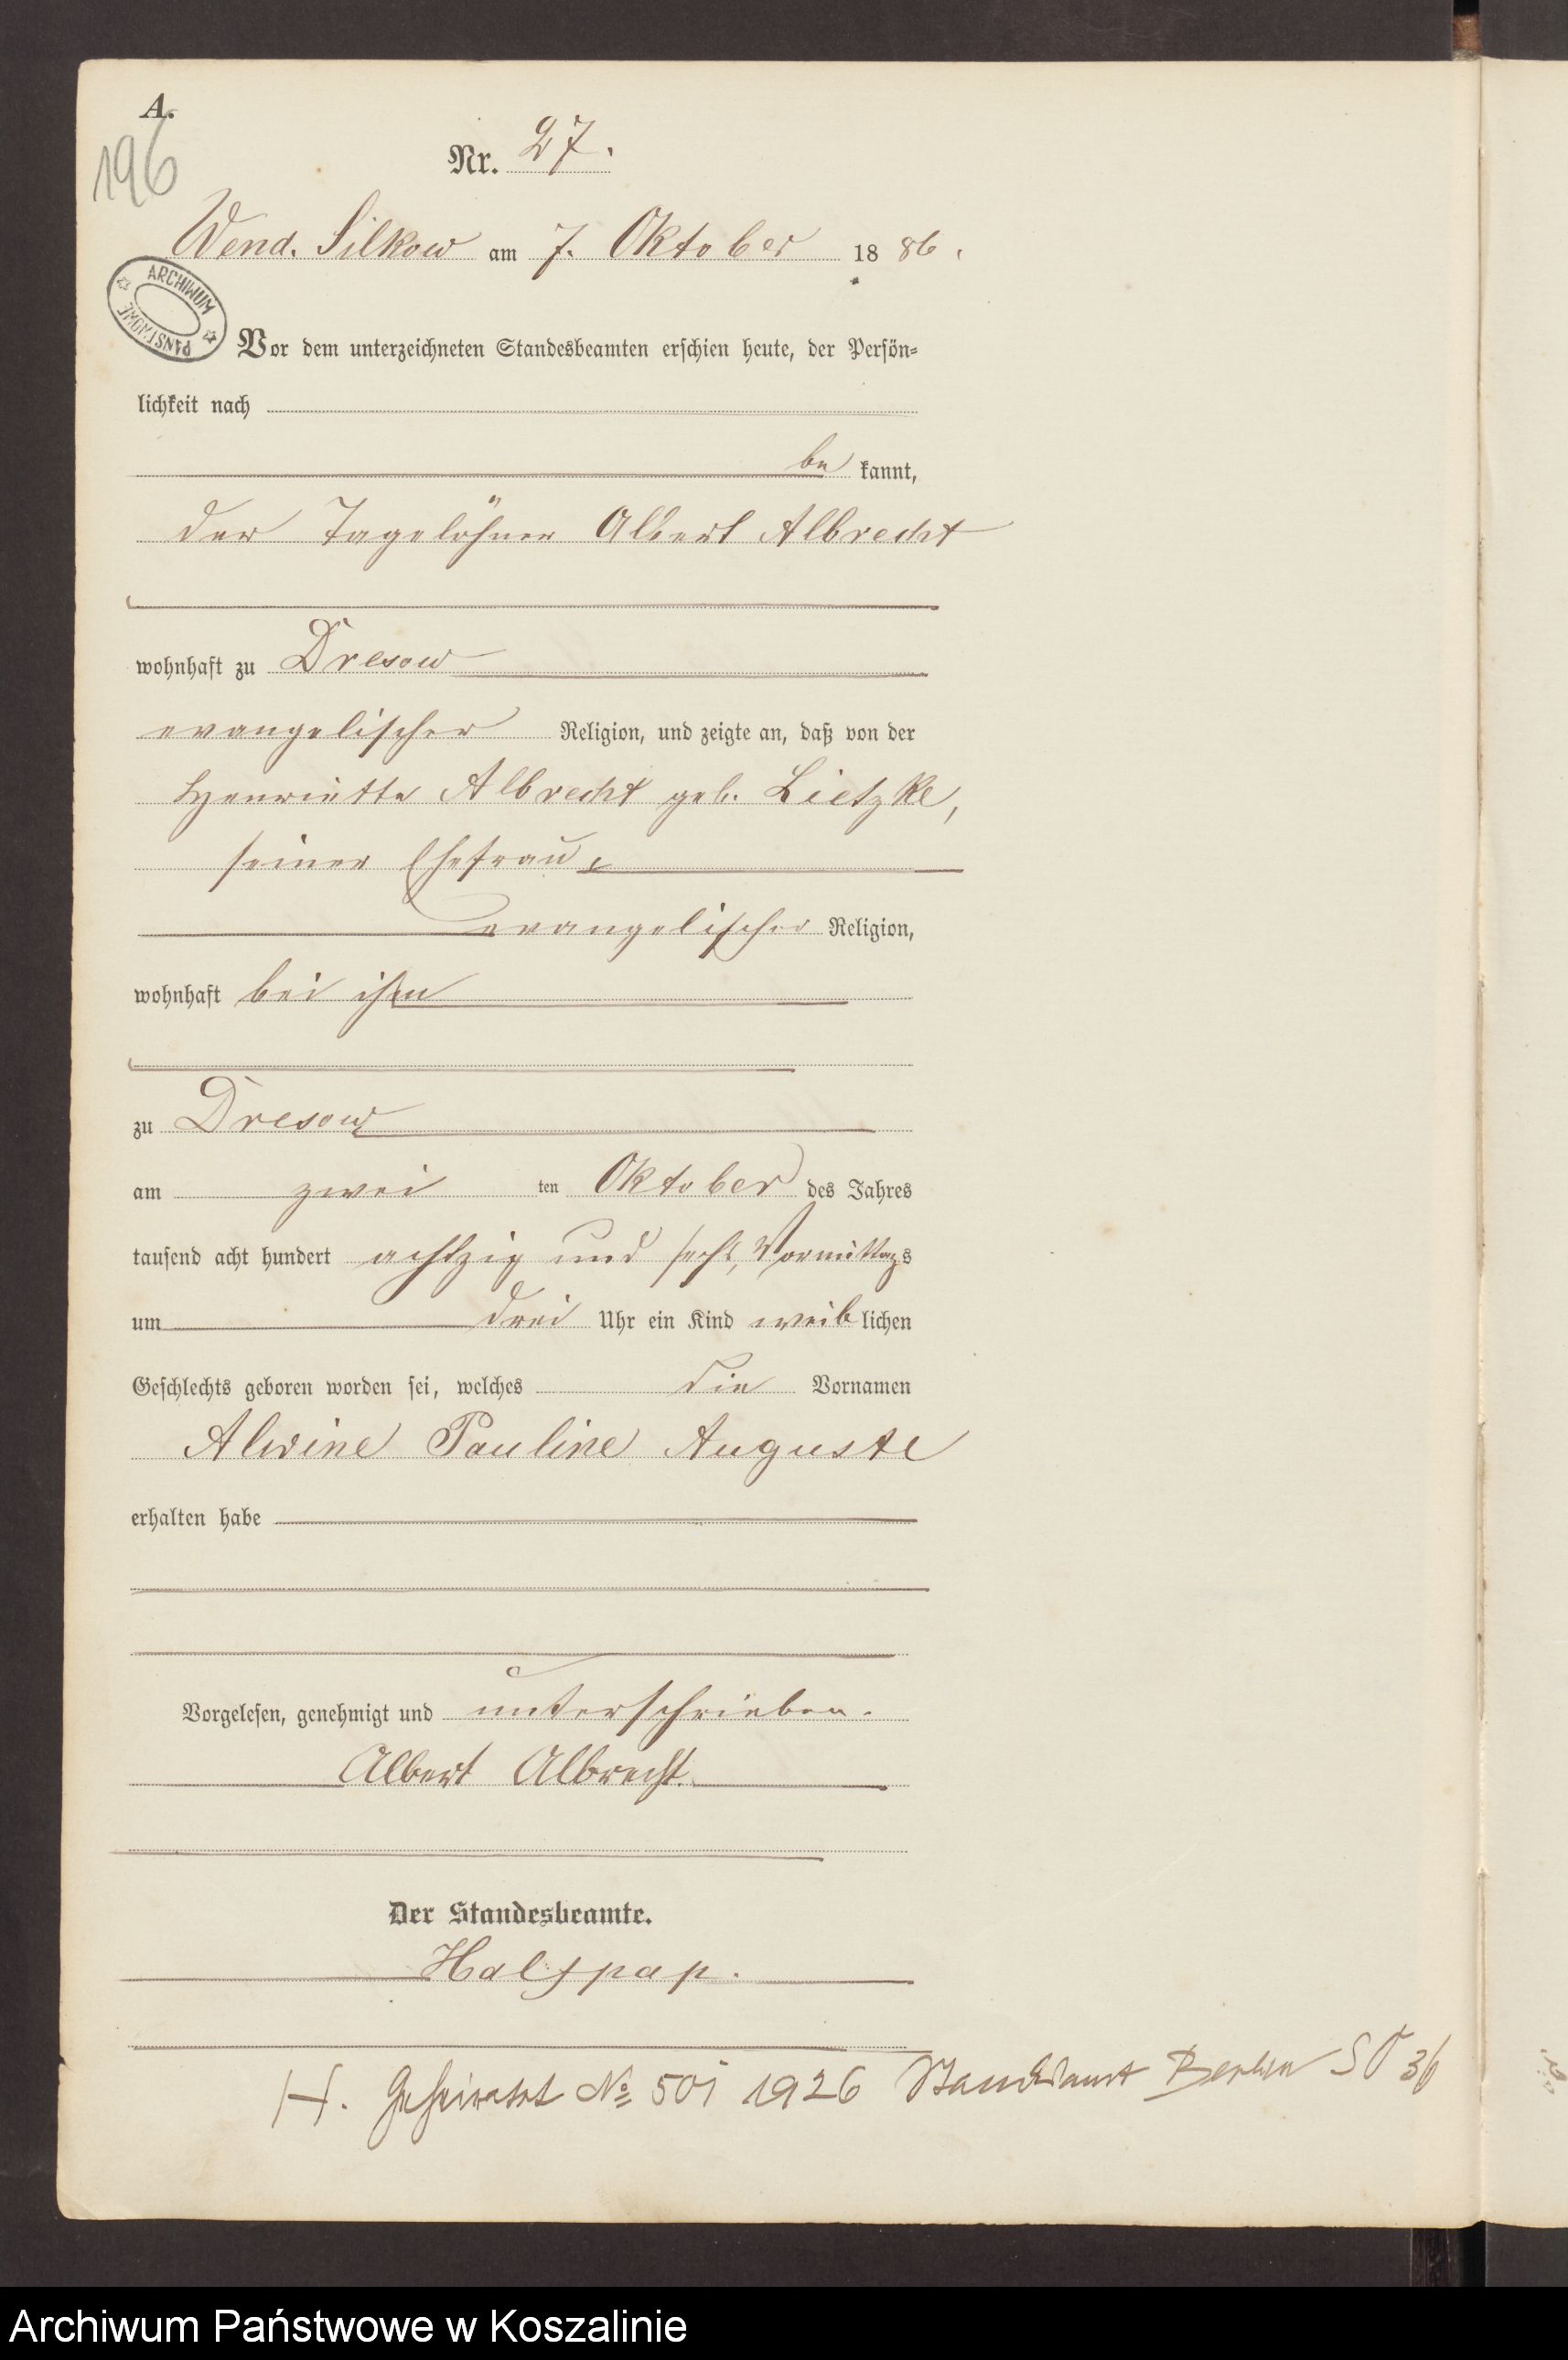 A.
196
Nr. 27.
Wend. Silkow am 7. Oktober 1886.
ARCHIWUM PAŃSTWOWE
Vor dem unterzeichneten Standesbeamten erschien heute, der Persön=
lichkeit nach
be kannt,
der Tagelöhner Albert Albrecht
wohnhaft zu Dresow
evangelischer Religion, und zeigte an, daß von der
Henriette Albrecht geb. Lietzke,
seiner Ehefrau,
evangelischer Religion,
wohnhaft bei ihm
zu Dresow
am zwei ten Oktober des Jahres
tausend acht hundert achtzig und sechs, Vormittags
um drei Uhr ein Kind weiblichen
Geschlechts geboren worden sei, welches die Vornamen
Alwine Pauline Auguste
erhalten habe
Vorgelesen, genehmigt und unterschrieben.
Albert Albrecht.
Der Standesbeamte.
H. Geheiratet № 501 1926 Standesamt Berlin SO 36
Archiwum Państwowe w Koszalinie